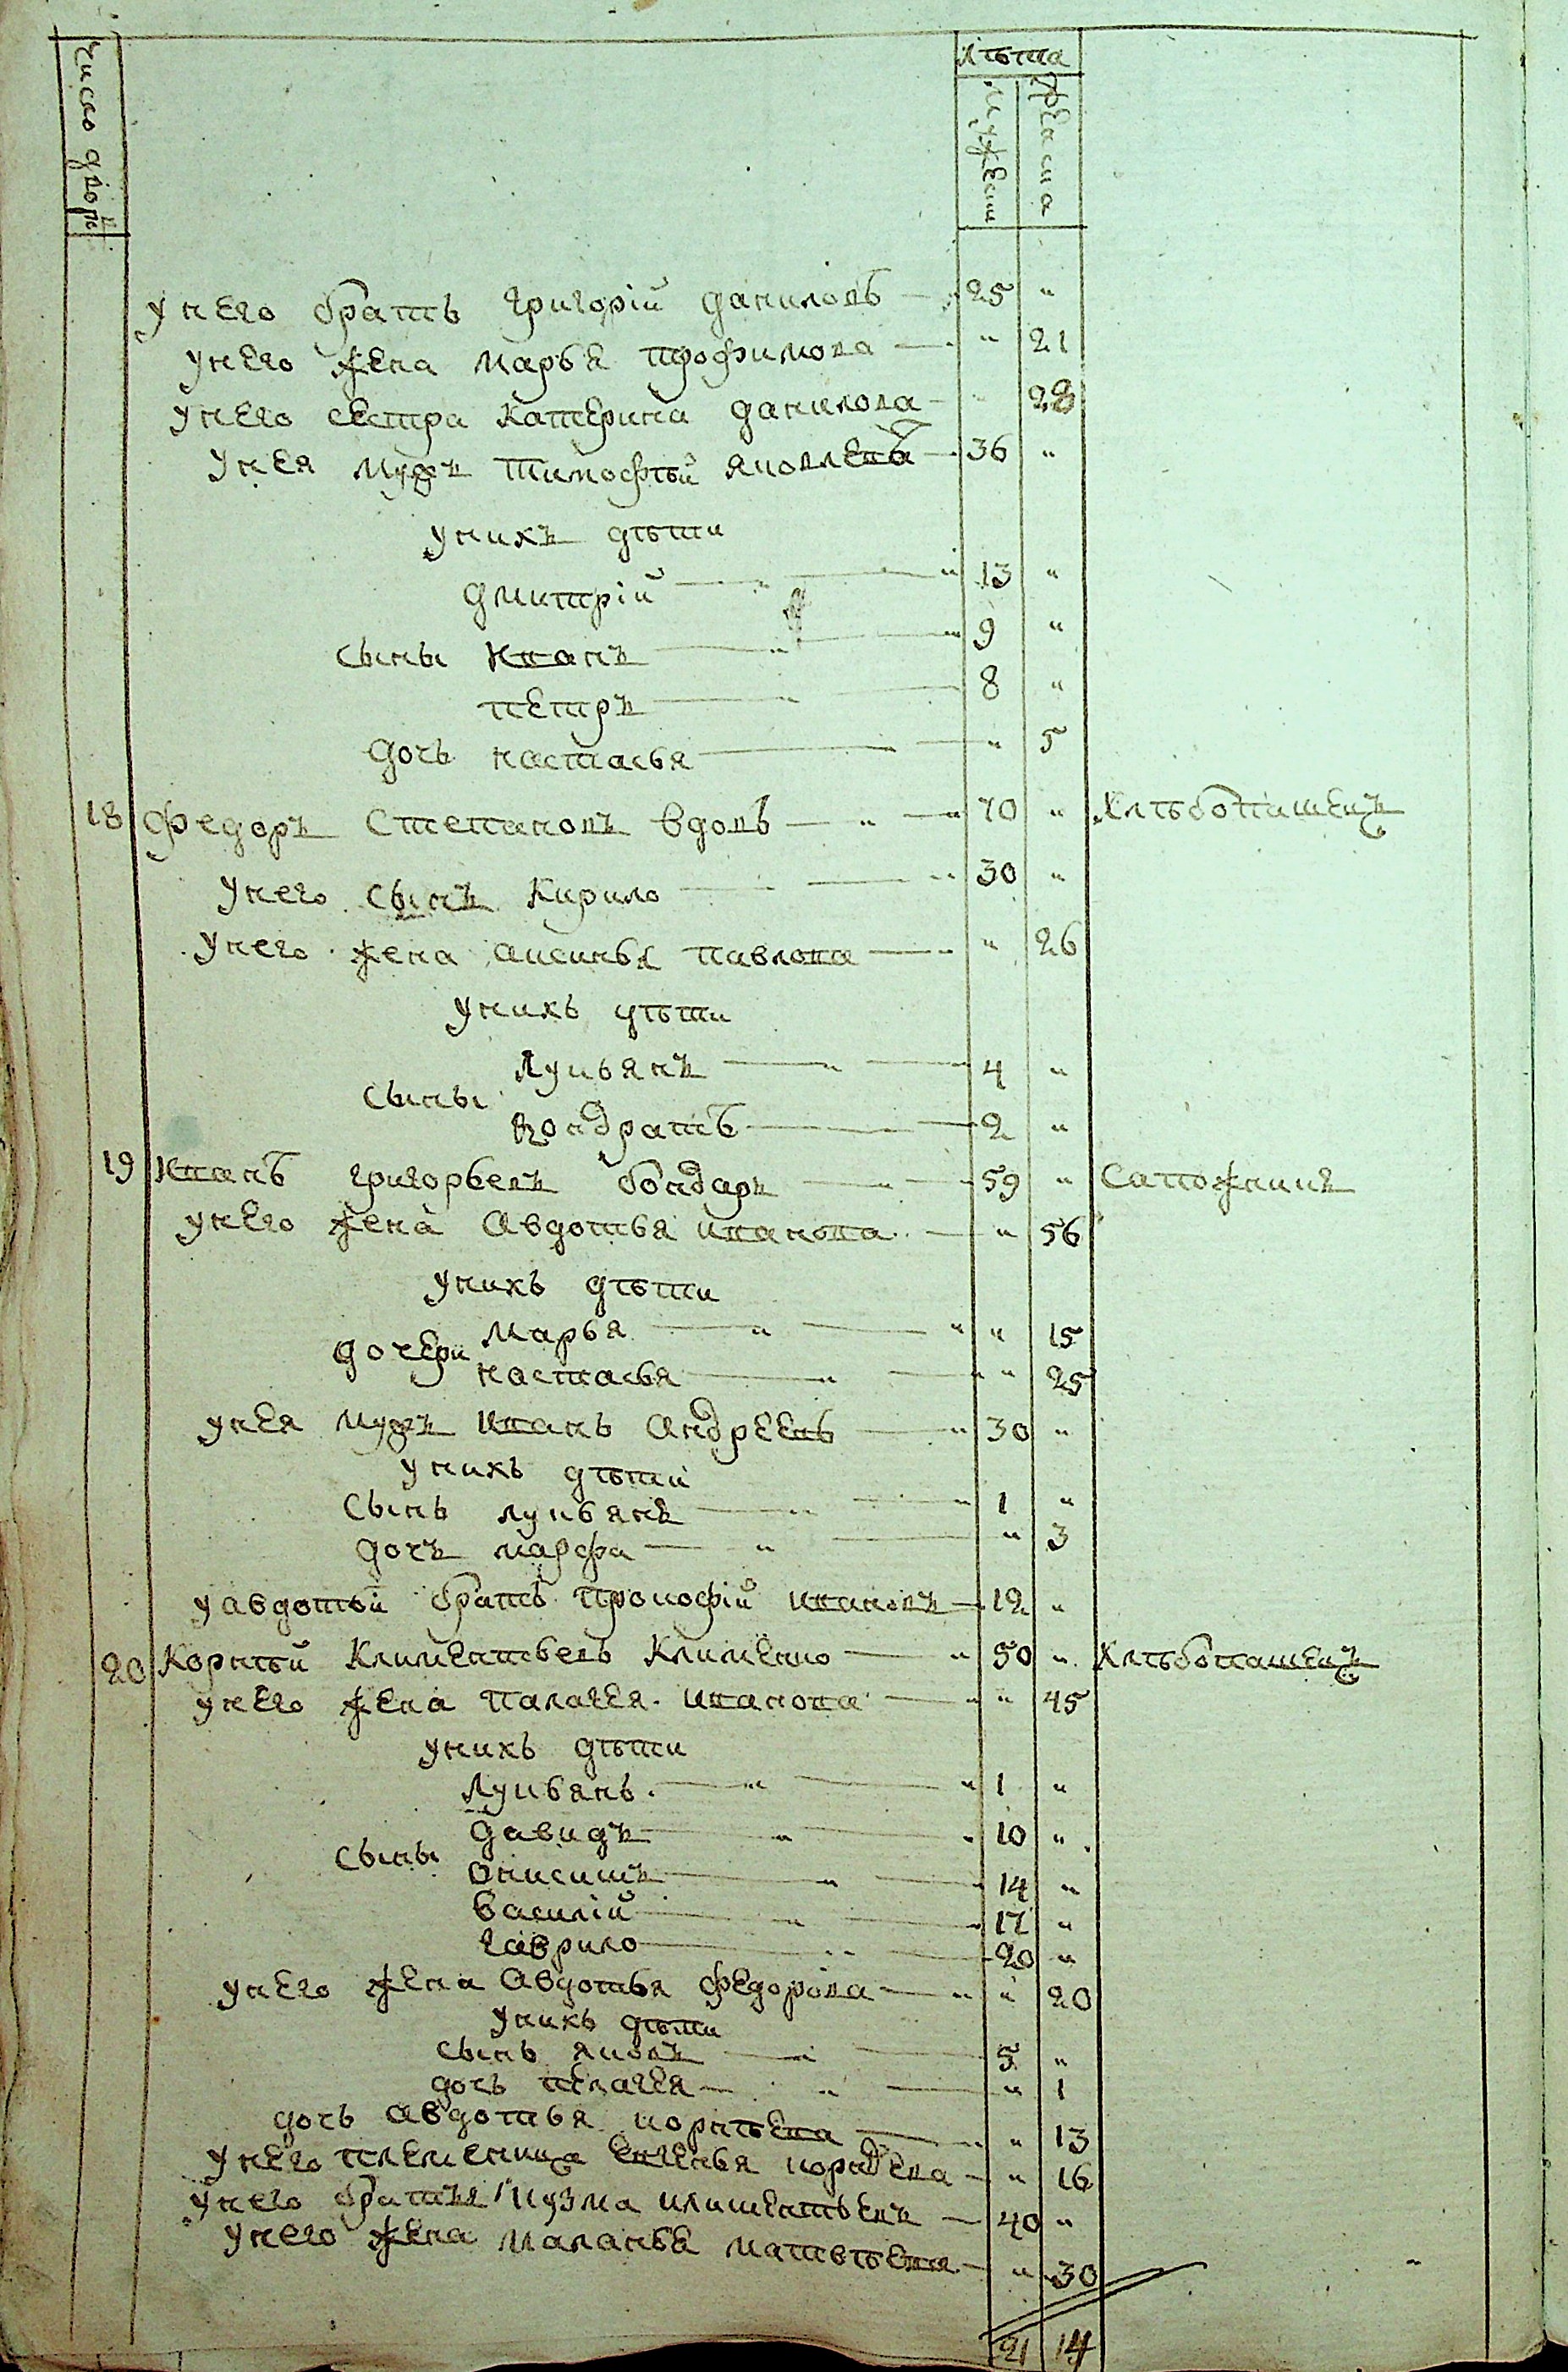 число дворъ
лѣта
мужеск
женска
у него братъ григорій даниловъ — 25 "
у него жена марья трофимова — " 21
у него сестра катерина данилова — " 28
у нея мужъ тимофѣй яковлевъ — 36 "
у нихъ дѣти
дмитрій — " — " 13 "
сыны иванъ — " — " 9 "
петръ — " — 8 "
дочь настасья — " 5
18 федоръ степановъ вдовъ — " — " 70 " хлѣбопашецъ
у него сынъ кирило — " 30 "
у него жена аксинья павлова — " " 26
у нихъ дѣти
лукьянъ — " — 4 "
сыны
кондратъ — 2 "
19 иванъ григорьевъ бондарь — " — 59 " сапожникъ
у него жена авдотья иванова — " 56
у нихъ дѣти
марья — " — " " 15
дочери
настасья — " — " " 25
у нея мужъ иванъ андреевъ — " 30 "
у нихъ дѣти
сынъ лукьянъ — " — " 1 "
дочь марфа — " — " 3
у авдотьи братъ прокофій ивановъ — 12 "
20 корнѣй климентьевъ клименко — " 50 " хлѣбопашецъ
у него жена палагея иванова — " " 45
у нихъ дѣти
лукьянъ — " — " 1 "
давидъ — " — " 10 "
сыны
онисимъ — " — " 14 "
василій — " — " 17 "
гаврило — " — 20 "
у него жена авдотья федорова — " " 20
у нихъ дѣти
сынъ яковъ — " — 5 "
дочь пелагея — " — " 1
дочь авдотья корнѣева — " " 13
у него племеница евгенья корнѣева — " 16
у него братъ кузма климентьевъ — 40 "
у него жена маланья матвѣева — " 30
21 14